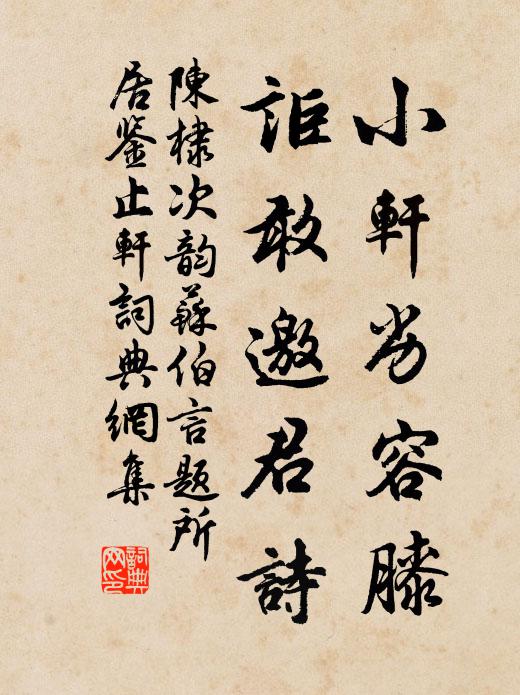 小軒劣容膝
詎敢邀君詩
陳棣次韵蘇伯言題所
居鉴止軒詞典網集
詞典网印